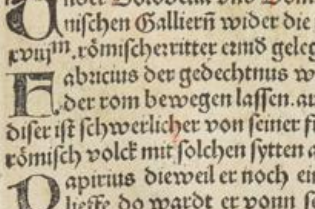 nischen Gallierñ wider die
xviijm. römischerritter
Fabricius der gedechtnus w
der rom bewegen lassen. au
diser ist schwerlicher von seiner fi
römisch volck mit solchen sytten a
Papirius dieweil er noch ein
liesse do wardt er vonn s